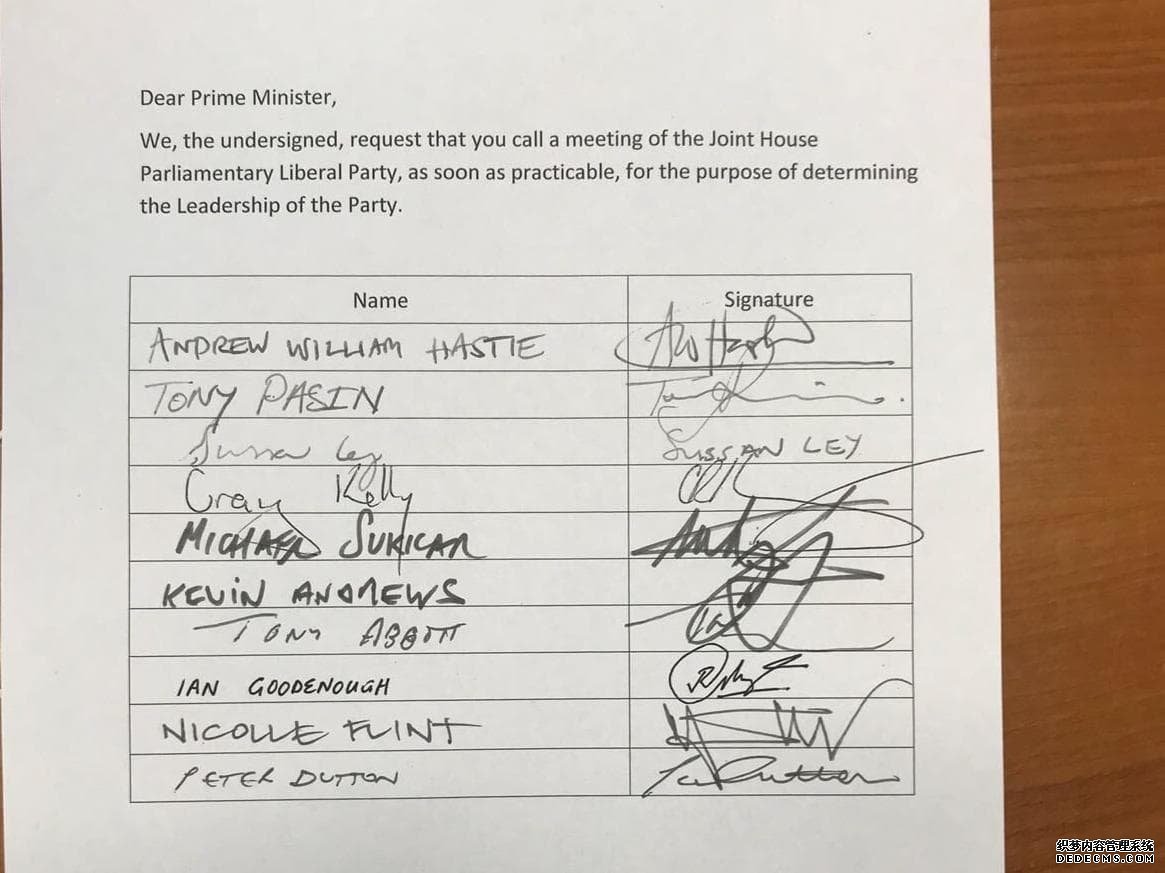 Dear Prime Minister,
We, the undersigned, request that you call a meeting of the Joint House
Parliamentary Liberal Party, as soon as practicable, for the purpose of determining
the Leadership of the Party.
Name Signature
ANDREW WILLIAM HASTIE AWHastie
TONY PASIN
Sussan Ley SUSSAN LEY
Craig Kelly
MICHAEL SUKKAR
KEVIN ANDREWS
TONY ABBOTT
IAN GOODENOUGH
NICOLLE FLINT
PETER DUTTON
织梦内容管理系统
DEDECMS.COM